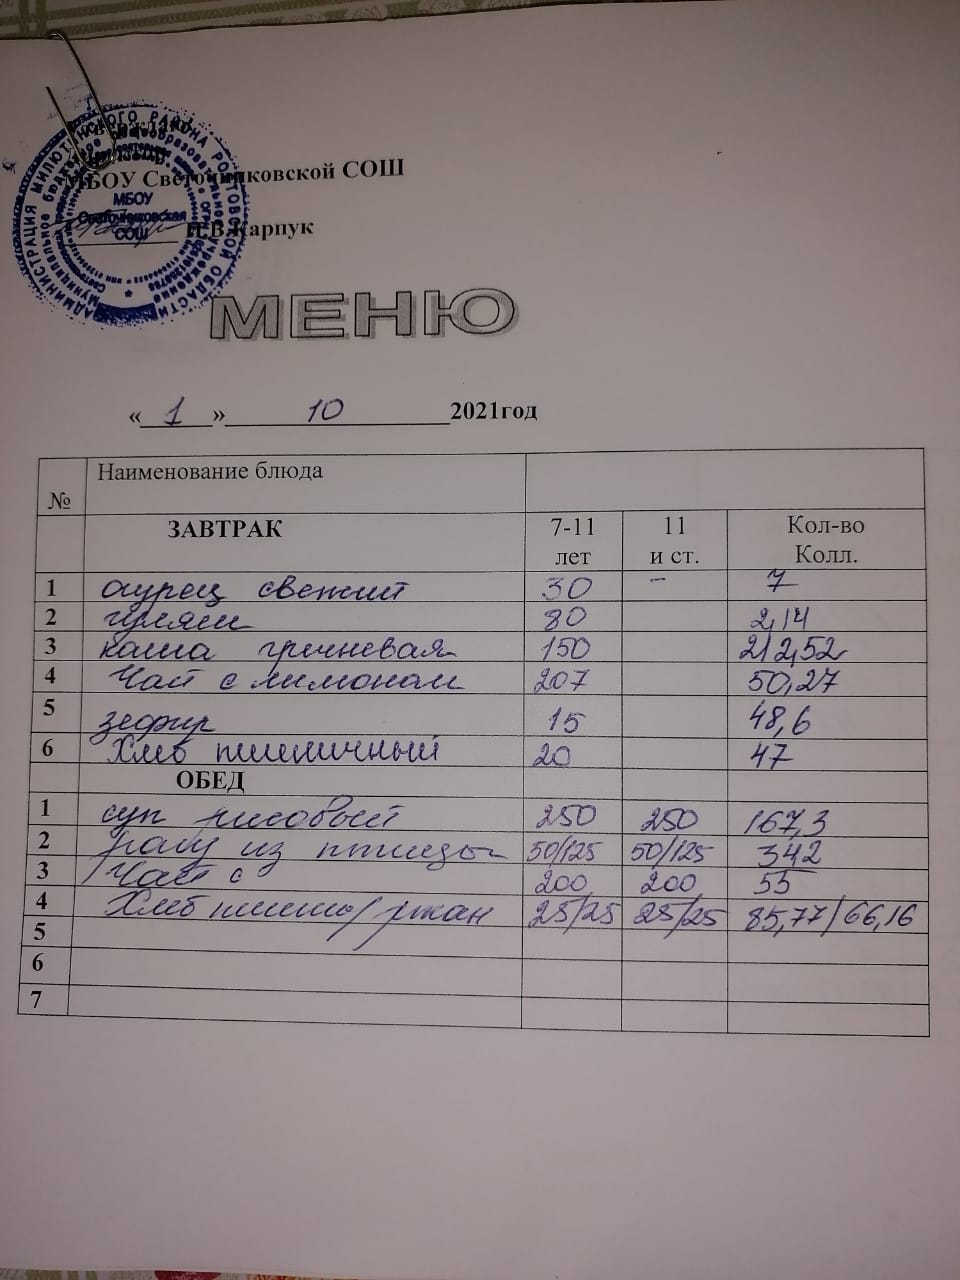 МБОУ Светочниковской СОШ
АДМИНИСТРАЦИЯ МИЛЮТИНСКОГО РАЙОНА РОСТОВСКОЙ ОБЛАСТИ
МБОУ
Светочниковская
СОШ
Карпук
МЕНЮ
«1» 10 2021год
№ Наименование блюда
ЗАВТРАК 7-11 лет 11 и ст. Кол-во Колл.
1 огурец свежий 30 - 7
2 гуляш 80 2,14
3 каша гречневая 150 212,52
4 Чай с лимоном 207 50,27
5 зефир 15 48,6
6 Хлеб пшеничный 20 47
ОБЕД
1 суп рисовый 250 250 167,3
2 рагу из птицы 50/125 50/125 342
3 Чай с 200 200 55
4 Хлеб пшен/ржан 25/25 25/25 85,77/66,16
5
6
7